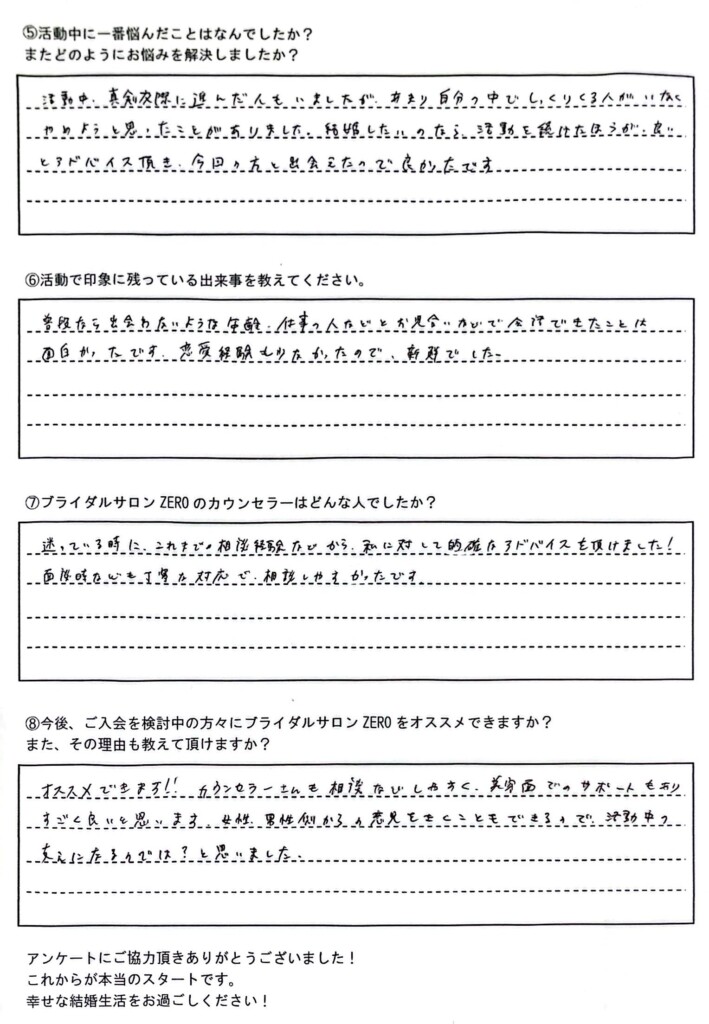 ⑤活動中に一番悩んだことはなんでしたか？
またどのようにお悩みを解決しましたか？
活動中、真剣交際に進んだ人もいましたが、あまり自分の中でしっくりくる人がいなく
やめようと思ったことがありました。結婚したいのなら、活動を続けたほうが良い
とアドバイス頂き、今回の方と出会えたので良かったです
⑥活動で印象に残っている出来事を教えてください。
普段なら出会わないような年齢、仕事の人などとお見合いなどで会話できたことは
面白かったです。恋愛経験も少なかったので、新鮮でした。
⑦ブライダルサロン ZERO のカウンセラーはどんな人でしたか？
迷っている時に、これまでの相談経験などから、私に対して的確なアドバイスを頂けました！
面談時なども丁寧な対応で、相談しやすかったです
⑧今後、ご入会を検討中の方々にブライダルサロン ZERO をオススメできますか？
また、その理由も教えて頂けますか？
オススメできます!! カウンセラーさんも相談などしやすく、美容面でのサポートもあり
すごく良いと思います。女性、男性側からの意見をきくこともできるので、活動中の
支えになるのでは？と思いました。
アンケートにご協力頂きありがとうございました！
これからが本当のスタートです。
幸せな結婚生活をお過ごしください！